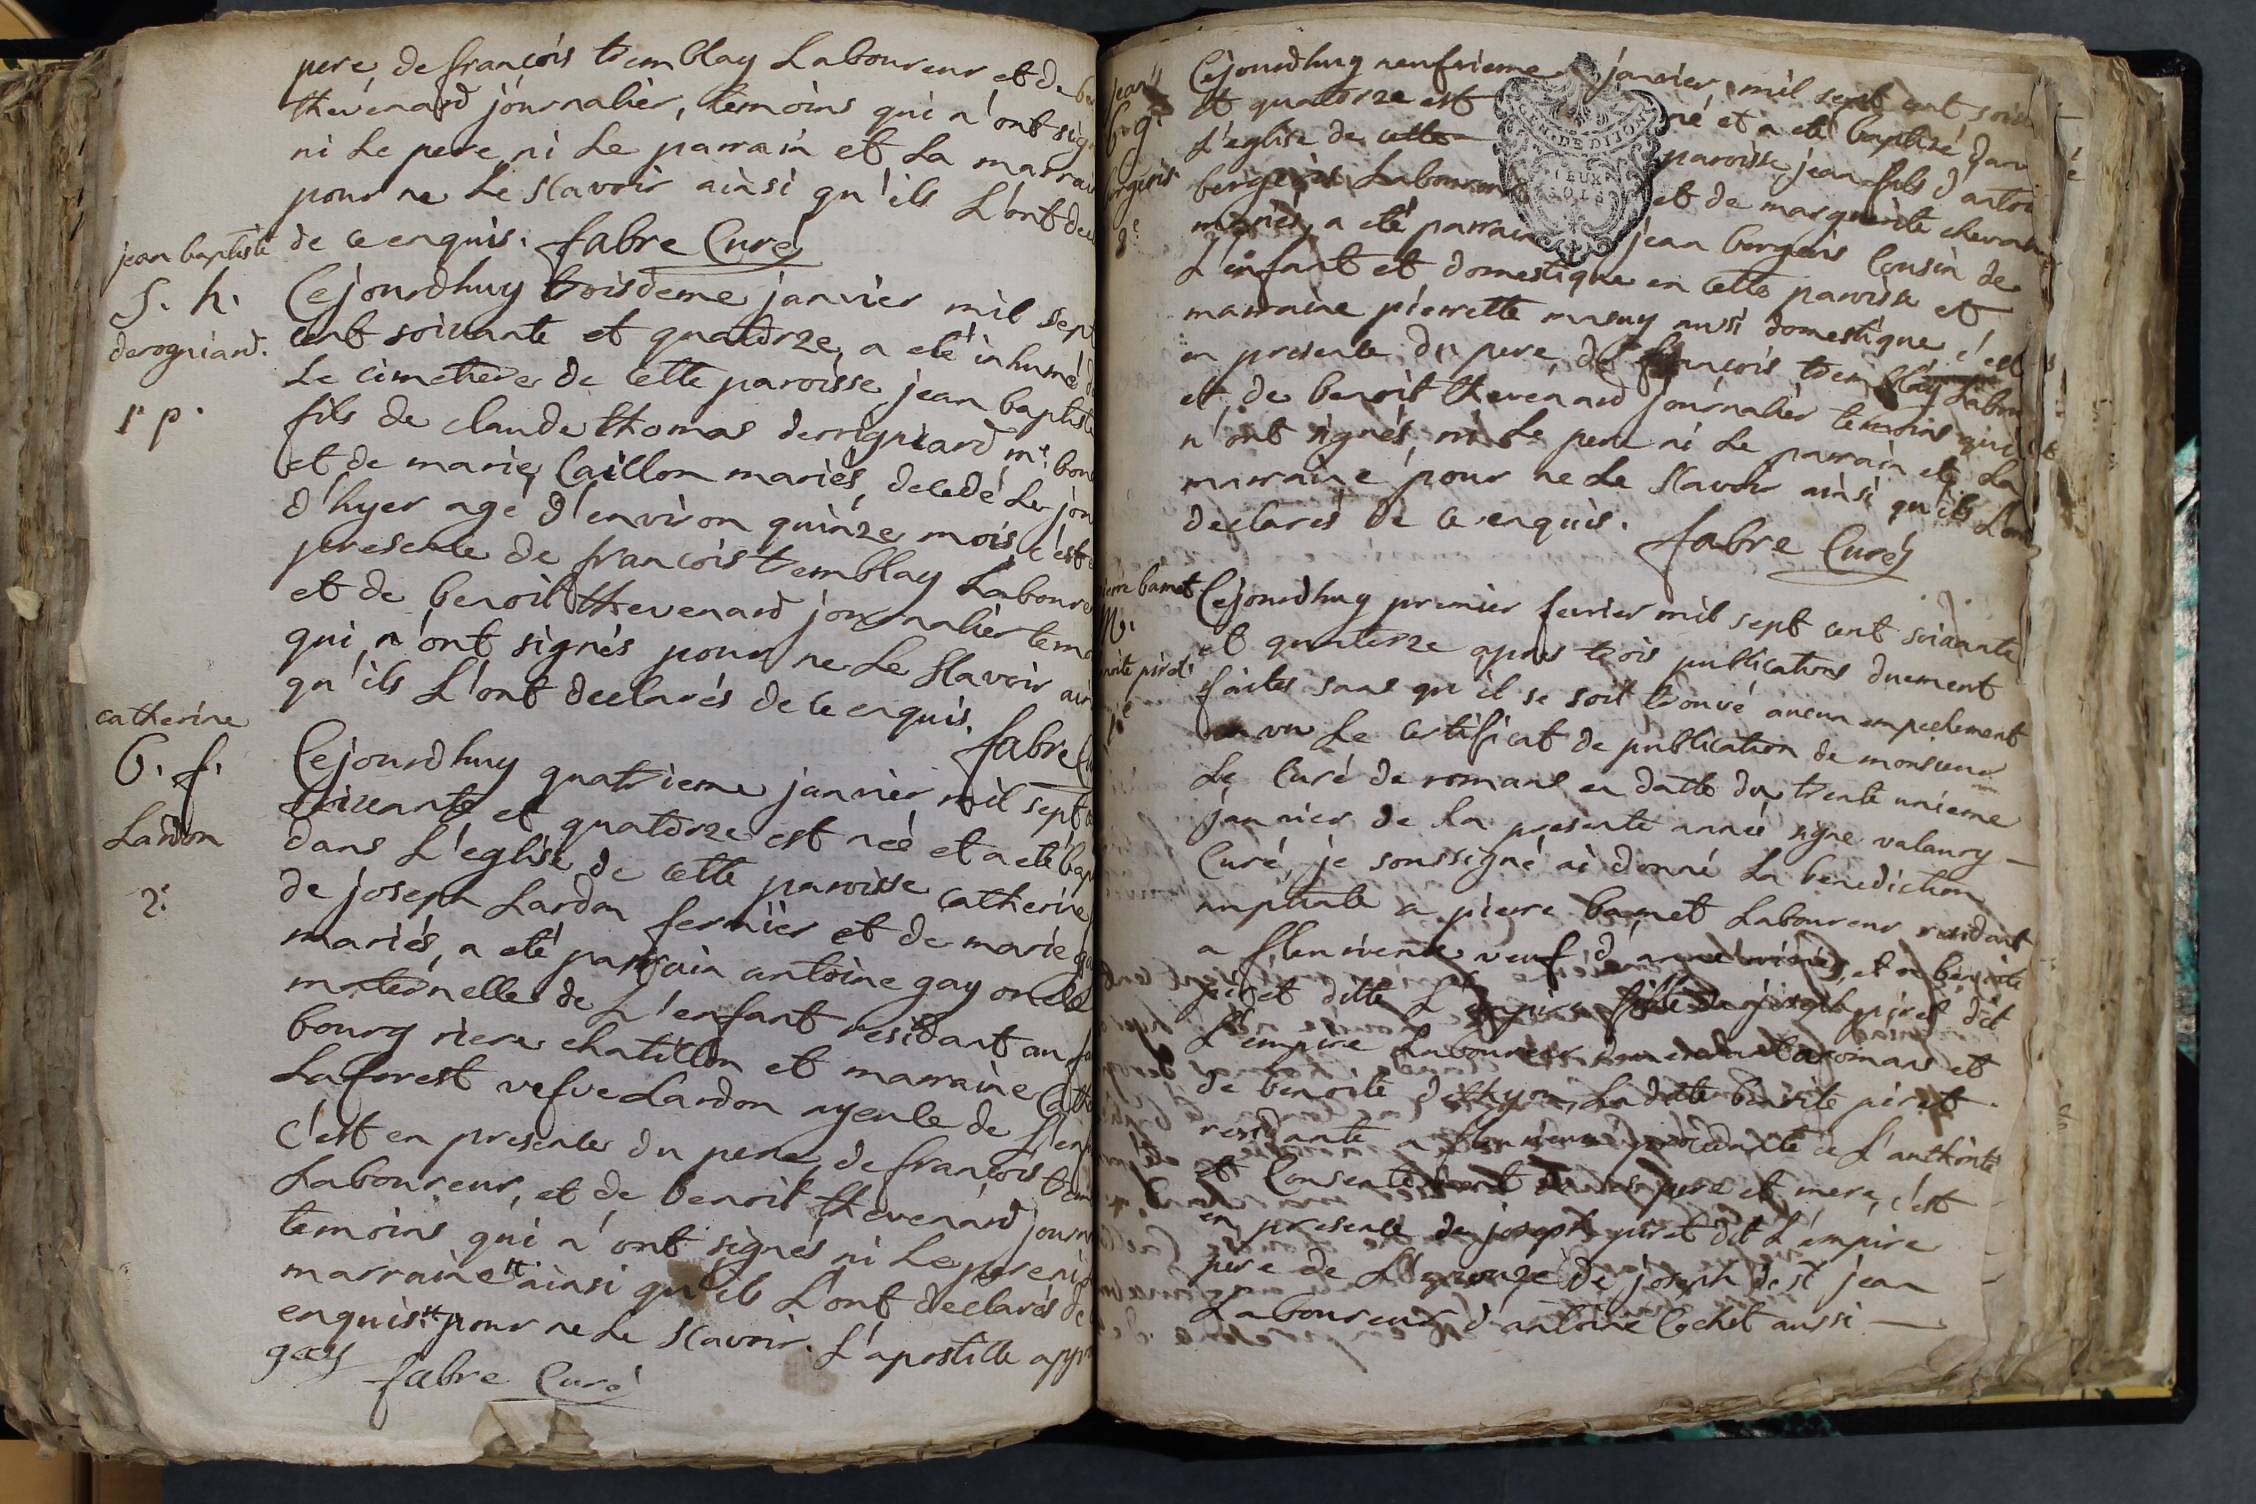 pere, de françois tremblay Laboureur et de be
thevenard journalier, temoins qui n'ont sig
ni Le pere ni Le parrain et La marrai
pour ne Le sçavoir ainsi qu'ils L'ont decl
de ce enquis. fabre Curé
jean baptiste
S. h.
derogniard.
1r p.
Cejourdhuy troisieme janvier mil sept
cent soixante et quatorze, a eté inhumé d
Le cimetiere de cette paroisse jean baptiste
fils de claude thomas derrogniard me. bou
et de marie Caillon mariés, decedé Le jou
d'hyer agé d'environ quinze mois, c'est e
presence de françois tremblay Laboure
et de benoit thevenard journalier temo
qui n'ont signés pour ne Le sçavoir ain
qu'ils L'ont declarés de ce enquis.
fabre Cu
catherine
b. f.
Lardon
2e
Cejourdhuy quatrieme janvier mil sept c
soixante et quatorze est née et a eté bap
dans L'eglise de cette paroisse catherine
de joseph Lardon fermier et de marie ga
mariés, a eté parrain antoine gay oncle
maternelle de L'enfant residant au fa
bourg riere chatillon et marraine Cathe
Laforest vefve Lardon ayeule de L'enf
c'est en presence du pere, de françois trem
Laboureur, et de benoit thevenard journ
temoins qui n'ont signés ni Le pere ni
marraine ## ainsi qu'ils L'ont declarés de
enquis ## pour ne Le sçavoir. L'apostille appr
gay fabre Curé
jean
b. g.
bergeris
3e
Cejourdhuy neufvieme janvier mil sept cent soix
et quatorze est né et a eté baptisé dan
L'eglise de cette paroisse jean fils d'antoi
Laboureur et de marguerite cheval
mariés, a eté parrain jean Cousin de
L'enfant et domestique en cette paroisse et
marraine pierrette masuy aussi domestique c'est
en presence du pere, de françois tremblay Labou
et de benoit thevenard journalier temoins qui
n'ont signés, ni Le pere ni Le parrain et La
marraine pour ne Le sçavoir ainsi qu'ils L'ont
declarés de ce enquis. fabre Curé
ierre bamet
M.
noite piret
1e
Cejourdhuy premier fevrier mil sept cent soixante
et quatorze apres trois publications duement
faites sans qu'il se soit trouvé aucun empechement
vu Le certificat de publication de monsieur
Le Curé de romans en datte du trente unieme
janvier de La presente année signe valancy
Curé, je soussigné ai donné La benediction
nuptiale a pierre bamet Laboureur residant
a veuf d'anne et a benoite
piret ditte L'empire fille de joseph piret dit
L'empire Laboureur a romans et
de benoite Ladite benoite piret
residante a procedante de L'authorité
et Consentement de ses pere et mere, c'est
en presence de joseph piret dit L'empire
pere de L'epouze de joseph de st jean
Laboureur d'antoine Cochet aussi